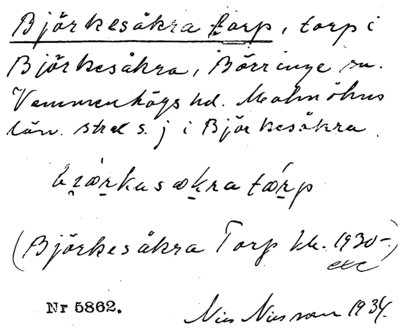 Björkesåkra torp, torp i
Björkesåkra, Börringe sn.
Vemmenhögs hd. Malmöhus
län. skat s. j i Björkesåkra.
torp
(Björkesåkra Torp kk. 1930-)
etc
Nr 5862.
Nils Nilsson 1934.